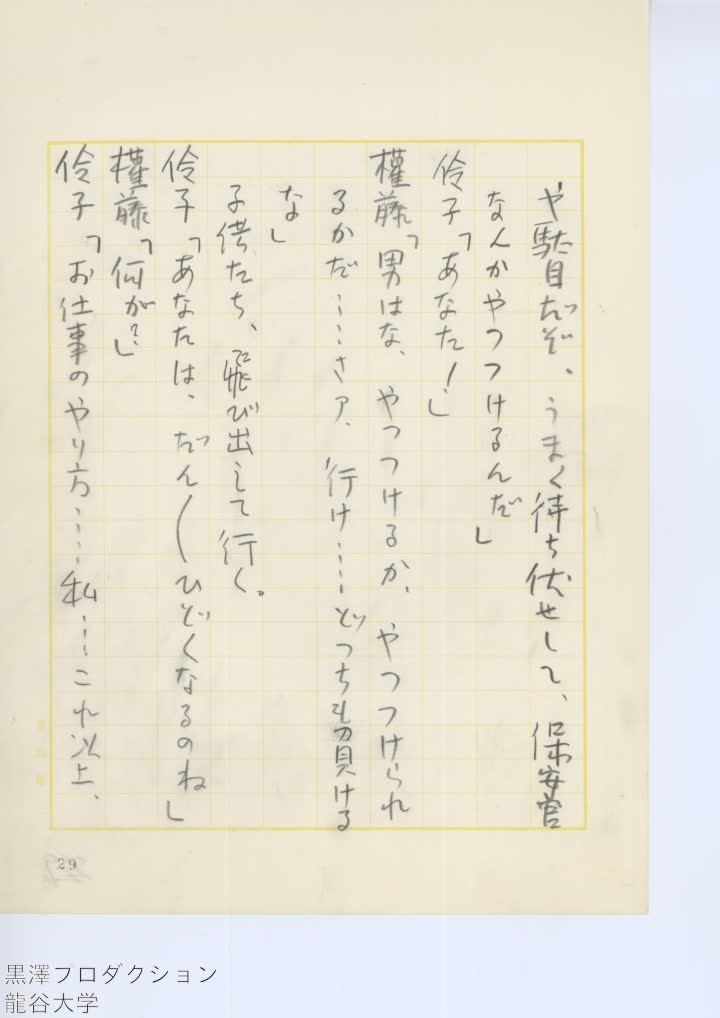 や駄目だぞ、うまく待ち伏せして、保安官
なんかやっつけるんだ」
伶子「あなた！」
權藤「男はな、やっつけるか、やっつけられ
るかだ……さァ、行け……どっちも負ける
な」
子供たち、飛び出して行く。
伶子「あなたは、だん〳〵ひどくなるのね」
權藤「何が？」
伶子「お仕事のやり方……私……これ以上、
29
黒澤プロダクション
龍谷大学